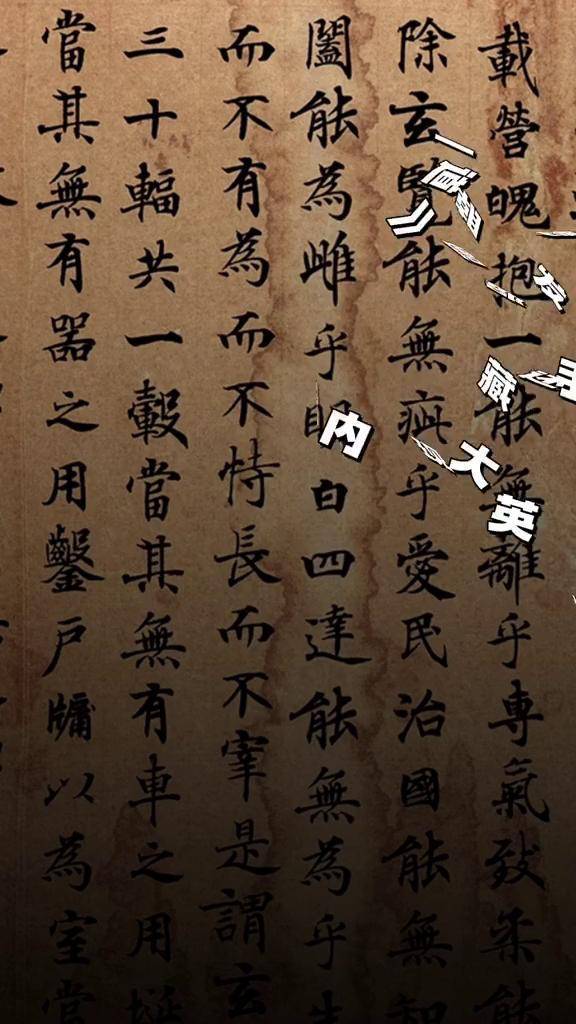 載營魄抱一能無離乎專氣致柔能
除玄覽能無疵乎愛民治國能無知
闔能為雌乎明白四達能無為乎生
而不有為而不恃長而不宰是謂玄
三十輻共一轂當其無有車之用埏
當其無有器之用鑿戶牖以為室當
内
藏
大英